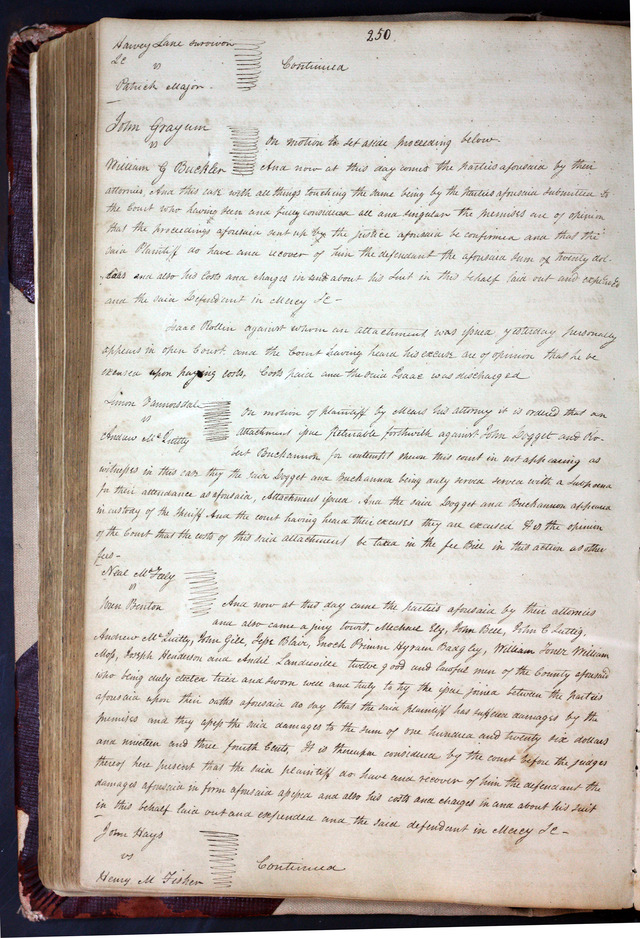 250
Harvey Lane survivor
&c vs Continued
Patrick Major
John Grayum
vs On motion to set aside proceeding below
William G Buckler And now at this day comes the parties aforesaid by their
attornies, And this case with all things touching the same being by the parties aforesaid submitted to
the Court who having seen and fully considered all and singular the premises are of opinion
that the proceedings aforesaid sent up by the justice aforesaid be confirmed and that the
said Plaintiff do have and recover of him the defendant the aforesaid sum of twenty dol-
lars and also his Costs and charges in and about his Suit in this behalf laid out and expended
and the said Defendant in Mercy &c -
Isaac Rollin against whom an attachment was issued yesterday personally
appears in open Court and the Court having heard his excuse are of opinion that he be
excused upon paying costs, Costs paid and the said Isaac was discharged
Simon Vannorsdal
vs On motion of plaintiff by Mears his attorney it is ordered that an
Andrew McQuitty attachment issue Returnable forthwith against John Dogget and Ro-
bert Buchannon for contempt shewn this court in not appearing as
witnesses in this case they the said Dogget and Buchannon being duly served served with a Subpoena
for their attendance as aforesaid, Attachment issued And the said Dogget and Buchannon appeared
in custody of the Sheriff And the court having heard their excuses they are excused It is the opinion
of the Court that the costs of this said attachment be taxed in the fee Bill in this action as other
fees -
Neal McFaly
vs And now at this day came the parties aforesaid by their attornies
Benton and also came a jury towit, Mechael Ely, John Bell, John C Luttig,
Andrew McQuitty, John Gill, Jesse Blair, Enoch Primm Hyram Badgley, William Jones William
Moss, Joseph Henderson and Andel Landreville twelve good and lawful men of the County aforesaid
who being duly elected tried and sworn well and truly to try the issue joined between the parties
aforesaid upon their oaths aforesaid do say that the said plaintiff has suffered damages by the
premises and they assess the said damages to the sum of one hundred and twenty six dollars
and nineteen and three fourth Cents, It is thereupon considered by the court before the judges
thereof here present that the said plaintiff do have and recover of him the defendant the
damages aforesaid in form aforesaid assessed and also his costs and charges in and about his suit
in this behalf laid out and expended and the said defendent in Mercy &c -
John Hays
vs Continued
Henry M Fisher